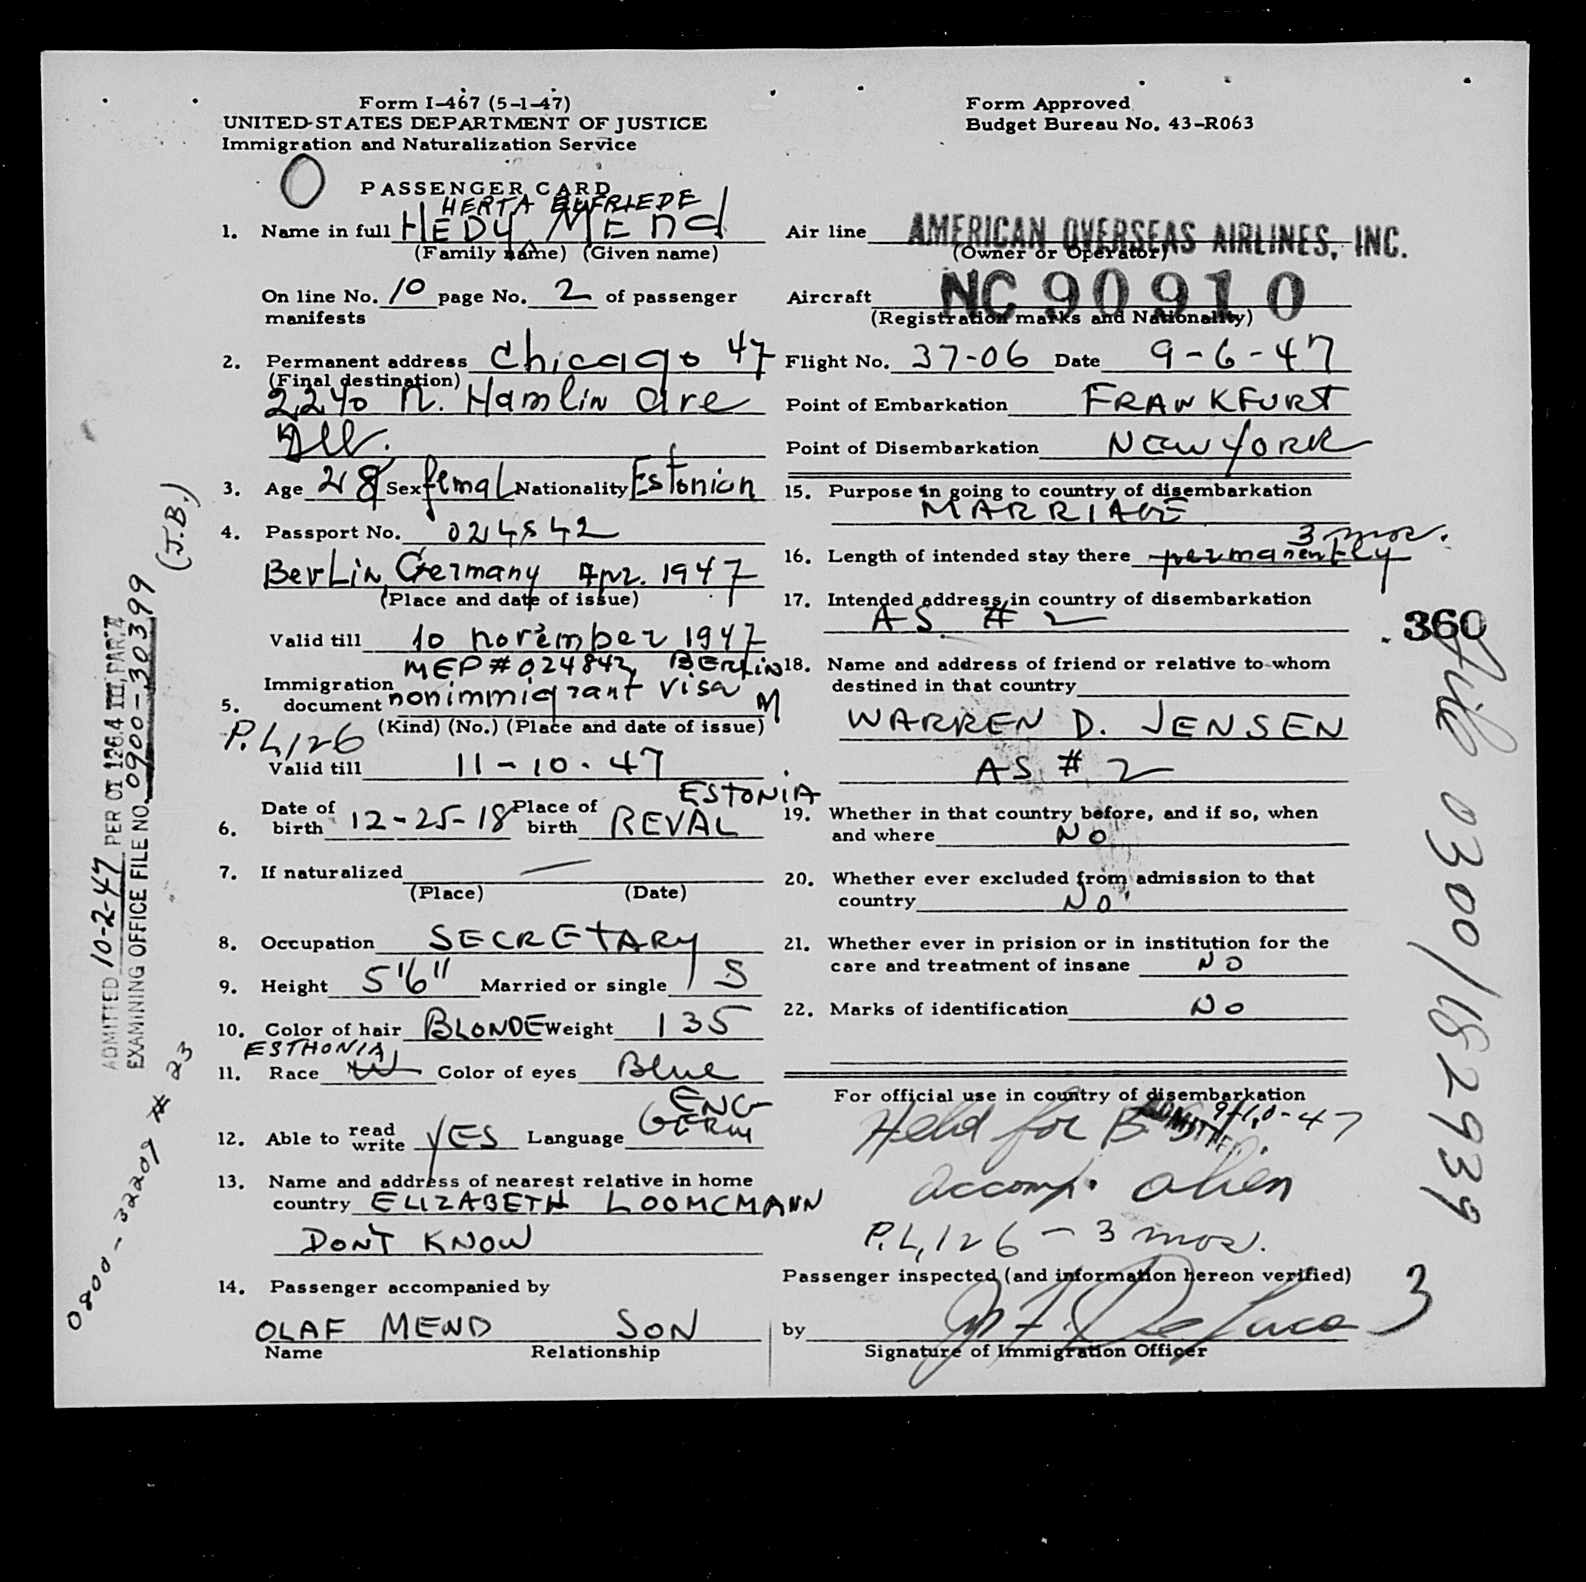 Form I-467 (5-1-47)
UNITED STATES DEPARTMENT OF JUSTICE
Immigration and Naturalization Service
Form Approved
Budget Bureau No. 43-R063
O
PASSENGER CARD
HERTA ELFRIEDE
1. Name in full HEDY MEnd
(Family name) (Given name)
On line No. 10 page No. 2 of passenger
manifests
2. Permanent address Chicago 47
(Final destination)
2240 N. Hamlin ave
Ill.
3. Age 28 Sex femal Nationality Estonian
4. Passport No. 024842
Berlin, Germany Apr. 1947
(Place and date of issue)
Valid till 10 november 1947
MEP # 024842 BERLin
Immigration
5. document nonimmigrant visa M
(Kind) (No.) (Place and date of issue)
P.L, 126
Valid till 11-10-47
ESTONIA
6. Date of birth 12-25-18 Place of birth REVAL
7. If naturalized —
(Place) (Date)
8. Occupation SECRETARY
9. Height 5'6" Married or single S
10. Color of hair BLONDE Weight 135
ESTHONIA
11. Race W Color of eyes Blue
ENG
12. Able to read write YES Language GERM
13. Name and address of nearest relative in home
country ELIZABETH LOOMCMANN
DONT KNOW
14. Passenger accompanied by
OLAF MEND SON
Name Relationship
Air line AMERICAN OVERSEAS AIRLINES, INC.
(Owner or Operator)
Aircraft NC 90910
(Registration marks and Nationality)
Flight No. 37-06 Date 9-6-47
Point of Embarkation FRANKFURT
Point of Disembarkation NEW YORK
15. Purpose in going to country of disembarkation
MARRIAGE
3 mos.
16. Length of intended stay there permanently
17. Intended address in country of disembarkation
AS # 2
18. Name and address of friend or relative to whom
destined in that country
WARREN D. JENSEN
AS # 2
19. Whether in that country before, and if so, when
and where NO
20. Whether ever excluded from admission to that
country NO
21. Whether ever in prision or in institution for the
care and treatment of insane NO
22. Marks of identification NO
For official use in country of disembarkation
Held for B.S.I.
ADMITTED 9-10-47
accomp. alien
P.L, 126 - 3 mos.
Passenger inspected (and information hereon verified)
by
Signature of Immigration Officer
3
360
File 0300/182939
ADMITTED 10-2-47 PER OI 126.4 III, PAR. 7
EXAMINING OFFICE FILE NO. 0900-30399
(J.B.)
0800-32209 # 23